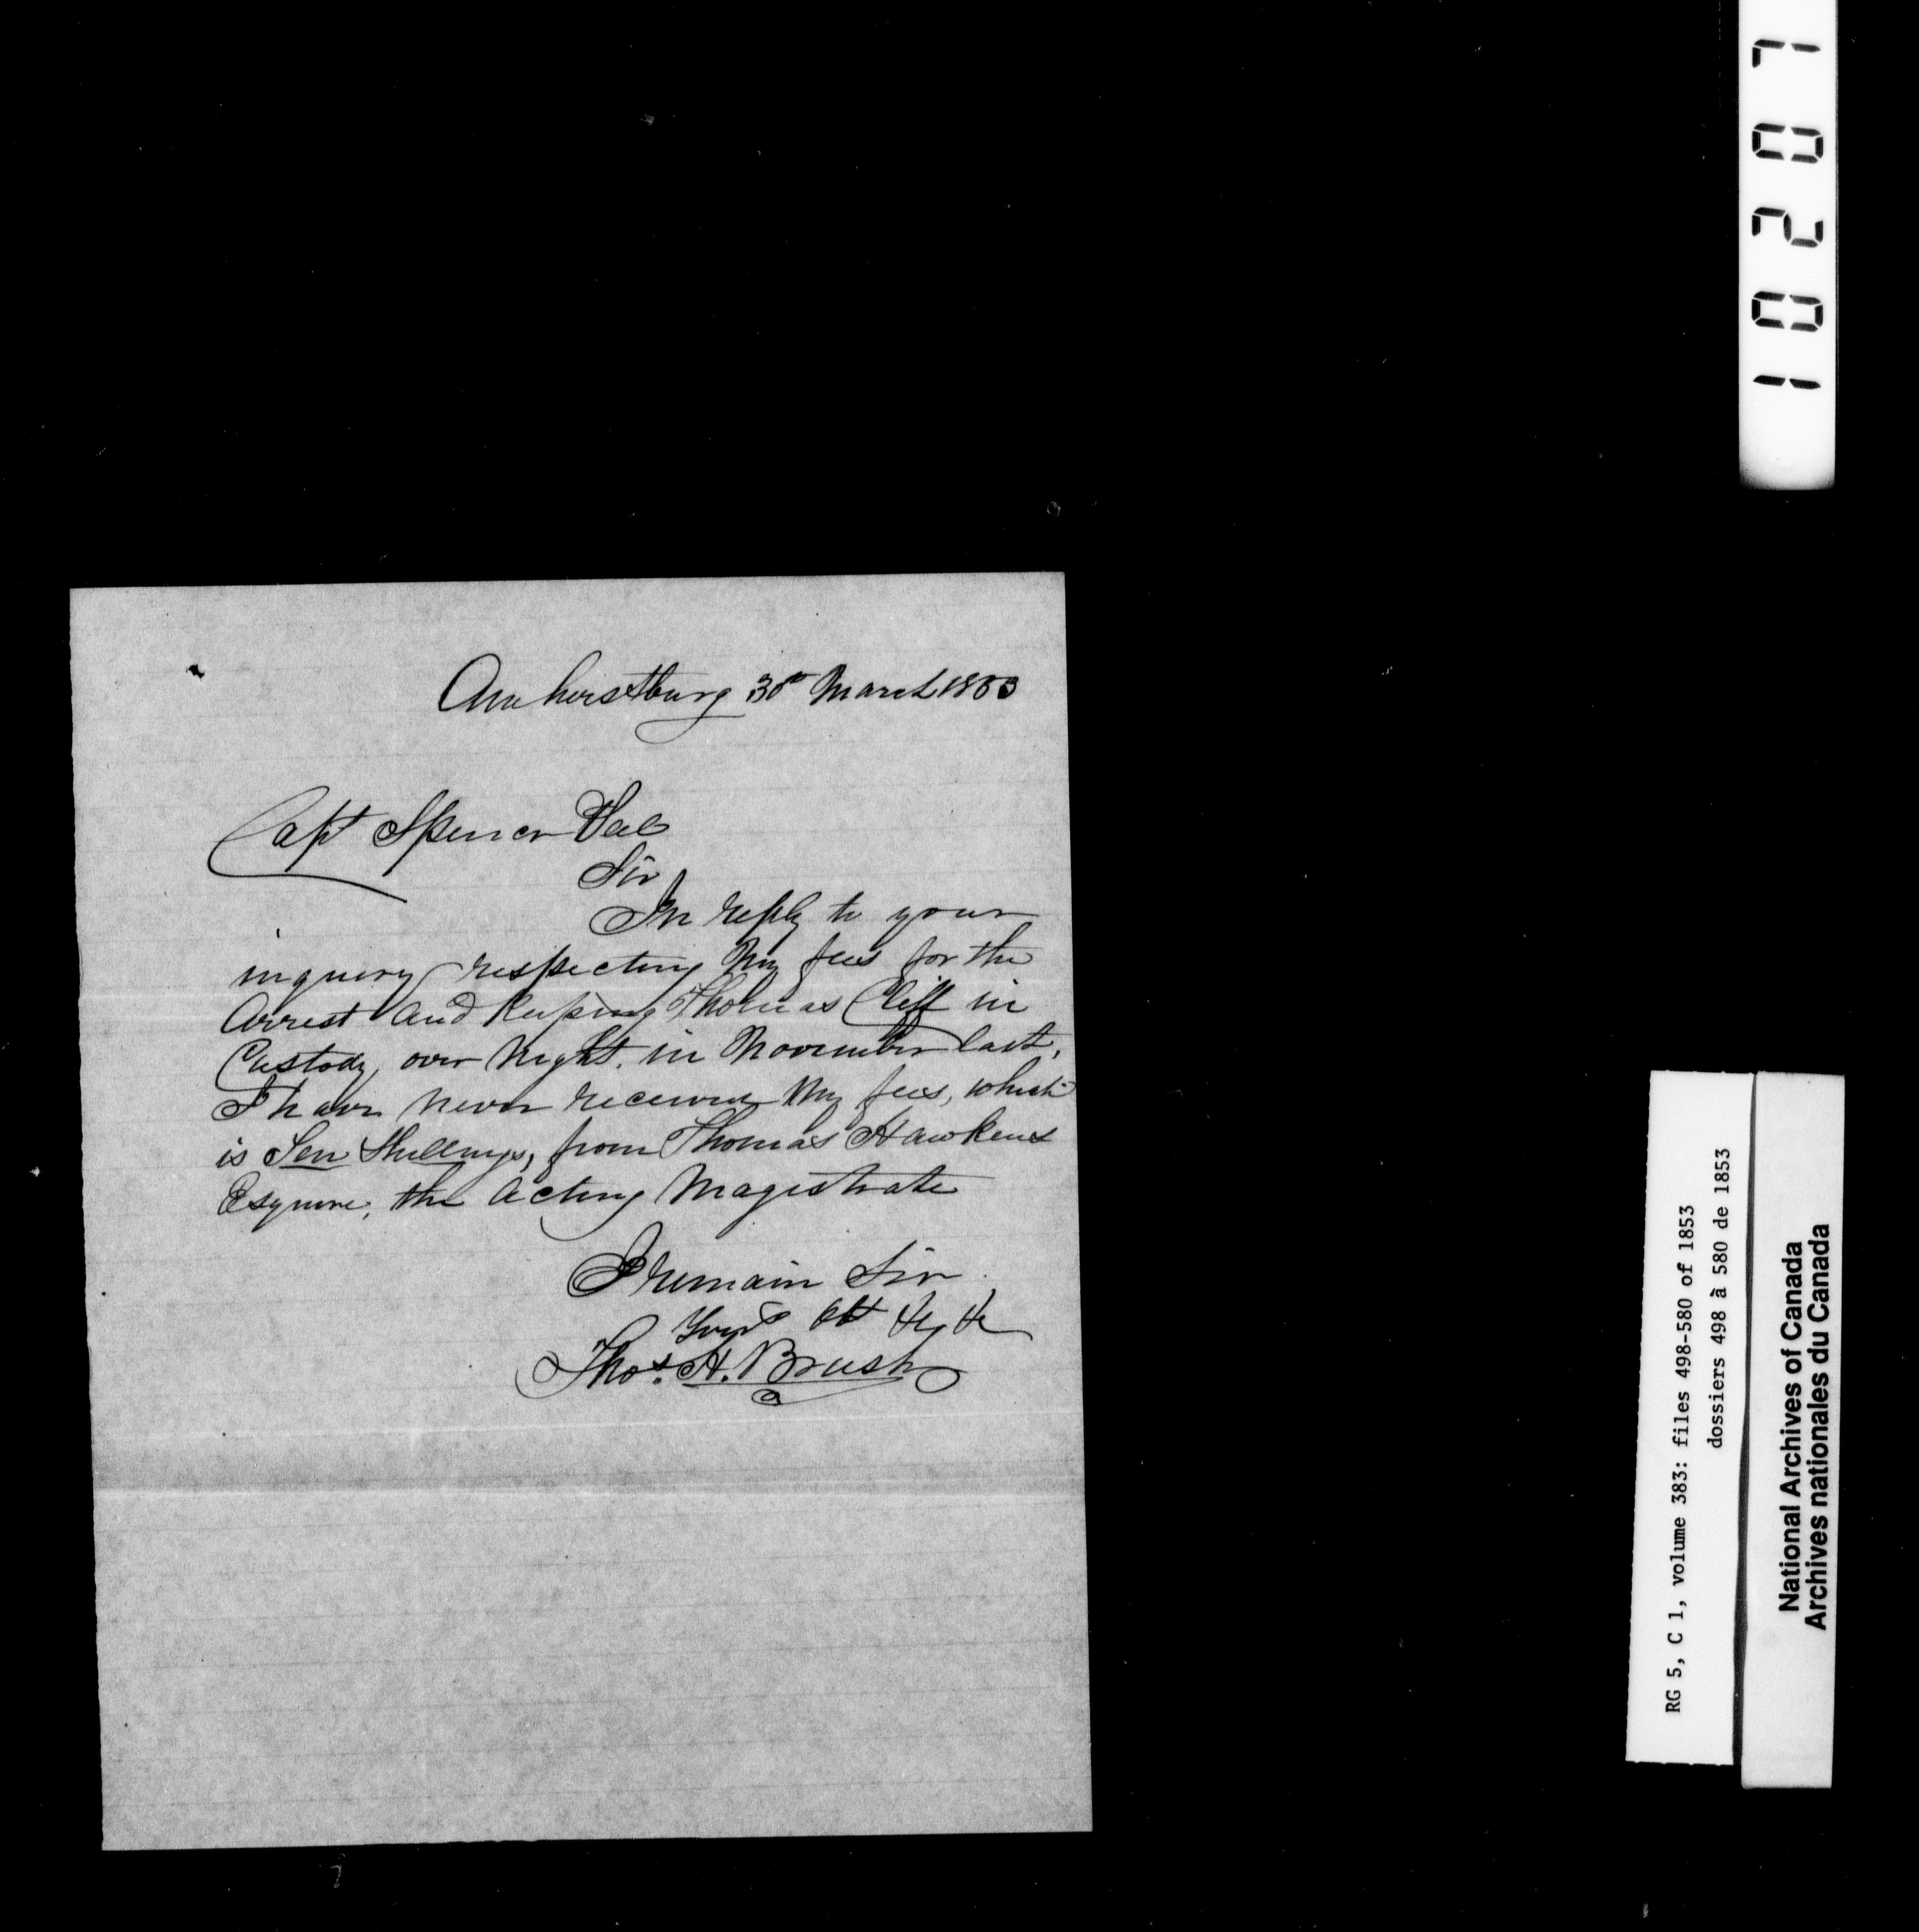 Amherstburg 30th March 1853
Capt Spencer
Sir
In reply to your
inquery respecting My fees for the
Arrest and keeping Thomas Cliff in
Custody, over Night. in November last,
I have never received My fees, which
is Ten Shillings, from Thomas Hawkens
Esquire, the Acting Magistrate
I remain Sir
Thos. H. Brush
10207
RG 5, C 1, volume 383: files 498-580 of 1853
dossiers 498 à 580 de 1853
National Archives of Canada
Archives nationales du Canada